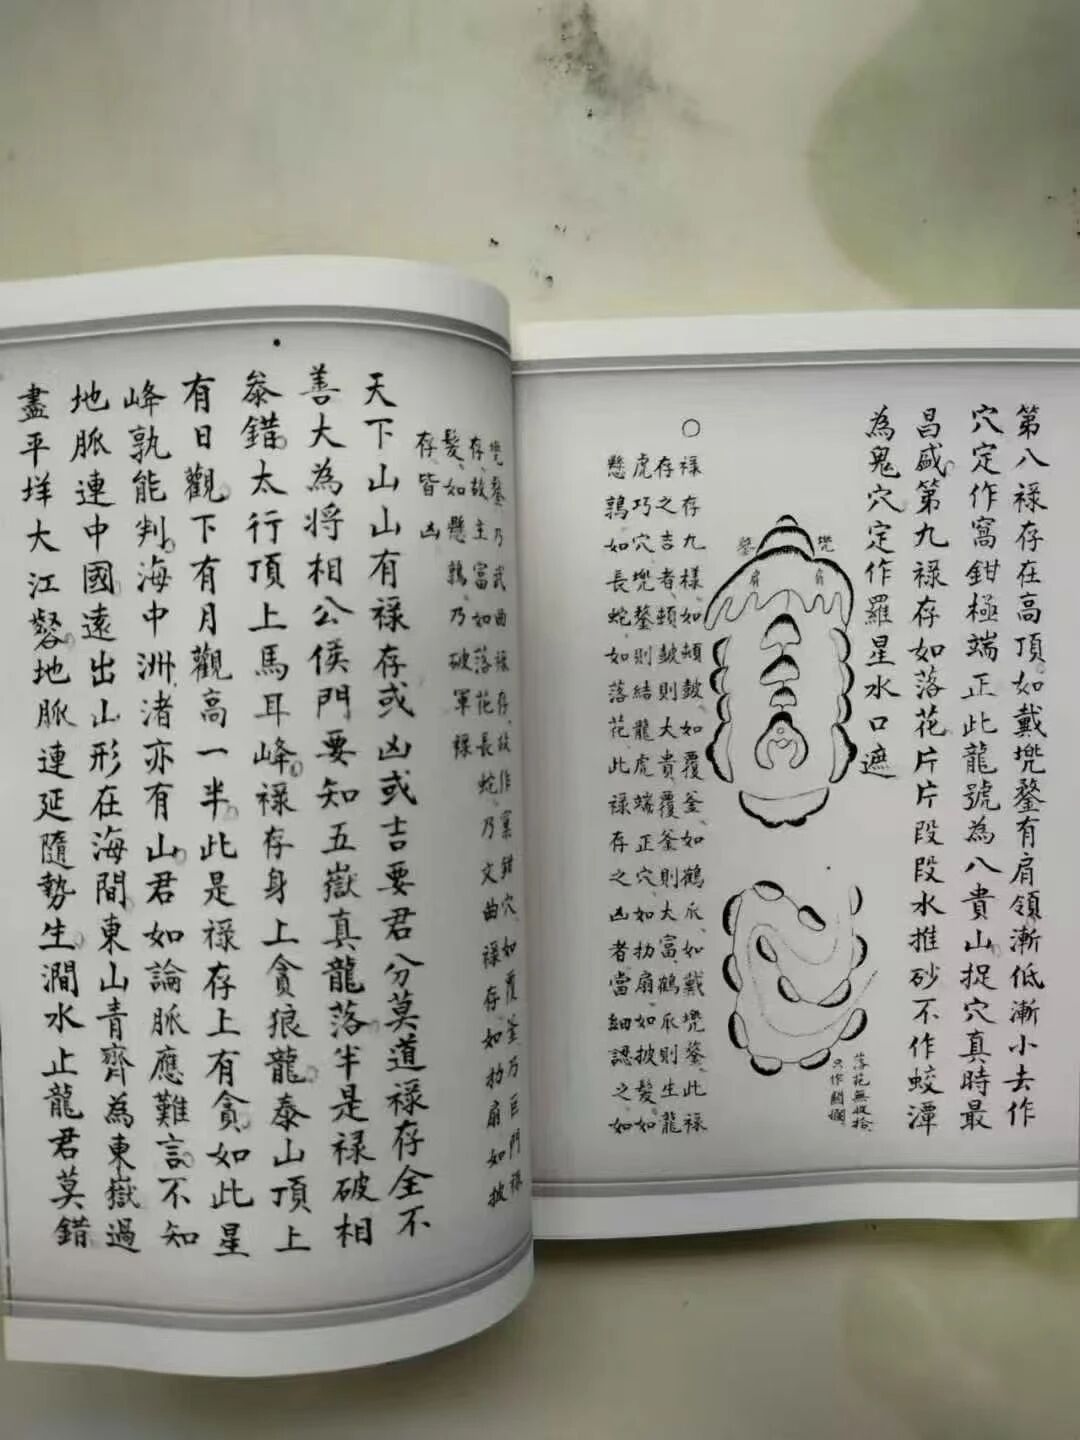 第八禄存在高頂如戴兠鍪有肩領漸低漸小去作
穴定作窩鉗極端正此龍號為八貴山捉穴真時最
昌盛第九禄存如落花片片段段水推砂不作蛟潭
為鬼穴定作羅星水口遮
兠
鍪
肩
肩
落花無收拾
只作關欄
○禄存九樣如頓皷如覆釜如鶴爪如戴兠鍪此禄
存之吉者頓皷則大貴覆釜則大富鶴爪則生龍
虎巧穴兠鍪則結龍虎端正穴如扐扇如披髮如
懸鶉如長蛇如落花此禄存之凶者當細認之如
兠鍪乃武曲禄存故作窠鉗穴如覆釜乃巨門禄
存故主富如落花長蛇乃文曲禄存如扐扇如披
髮如懸鶉乃破軍禄
存皆凶
天下山山有禄存或凶或吉要君分莫道禄存全不
善大為將相公侯門要知五嶽真龍落半是禄破相
叅錯太行頂上馬耳峰禄存身上貪狼龍泰山頂上
有日觀下有月觀高一半此是禄存上有貪如此星
峰孰能判海中洲渚亦有山君如論脈應難言不知
地脈連中國遠出山形在海間東山青齊為東嶽過
盡平垟大江磐地脈連延隨勢生澗水止龍君莫錯